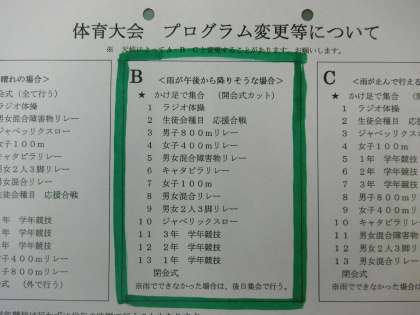 体育大会 プログラム変更等について
晴れの場合>
会式(全て行う)
ラジオ体操
男女混合障害物リレー
ジャベリックスロー
女子100m
キャタピラリレー
男女2人3脚リレー
生徒会種目 応援合戦
年 学年競技
年 学年競技
年 学年競技
子400mリレー
子800mリレー
式 (外で行う)
B <雨が午後から降りそうな場合>
★ かけ足で集合 (開会式カット)
1 ラジオ体操
2 生徒会種目 応援合戦
3 男子800mリレー
4 女子400mリレー
5 男女混合障害物リレー
6 キャタピラリレー
7 女子100m
8 男女混合リレー
9 男女2人3脚リレー
10 ジャベリックスロー
11 3年 学年競技
12 2年 学年競技
13 1年 学年競技
閉会式
※雨でできなかった場合は、後日集会で行う。
C <雨が止んで行える
★ かけ足で集合
1 ラジオ体操
2 生徒会種目
3 男女混合リレー
4 女子100m
5 1年 学年競技
6 2年 学年競技
7 3年 学年競技
8 男子800m
9 女子400m
10 キャタピラリレー
11 男女混合障害物
12 男女2人3脚
13 男女混合リレー
閉会式
※雨でできなかった